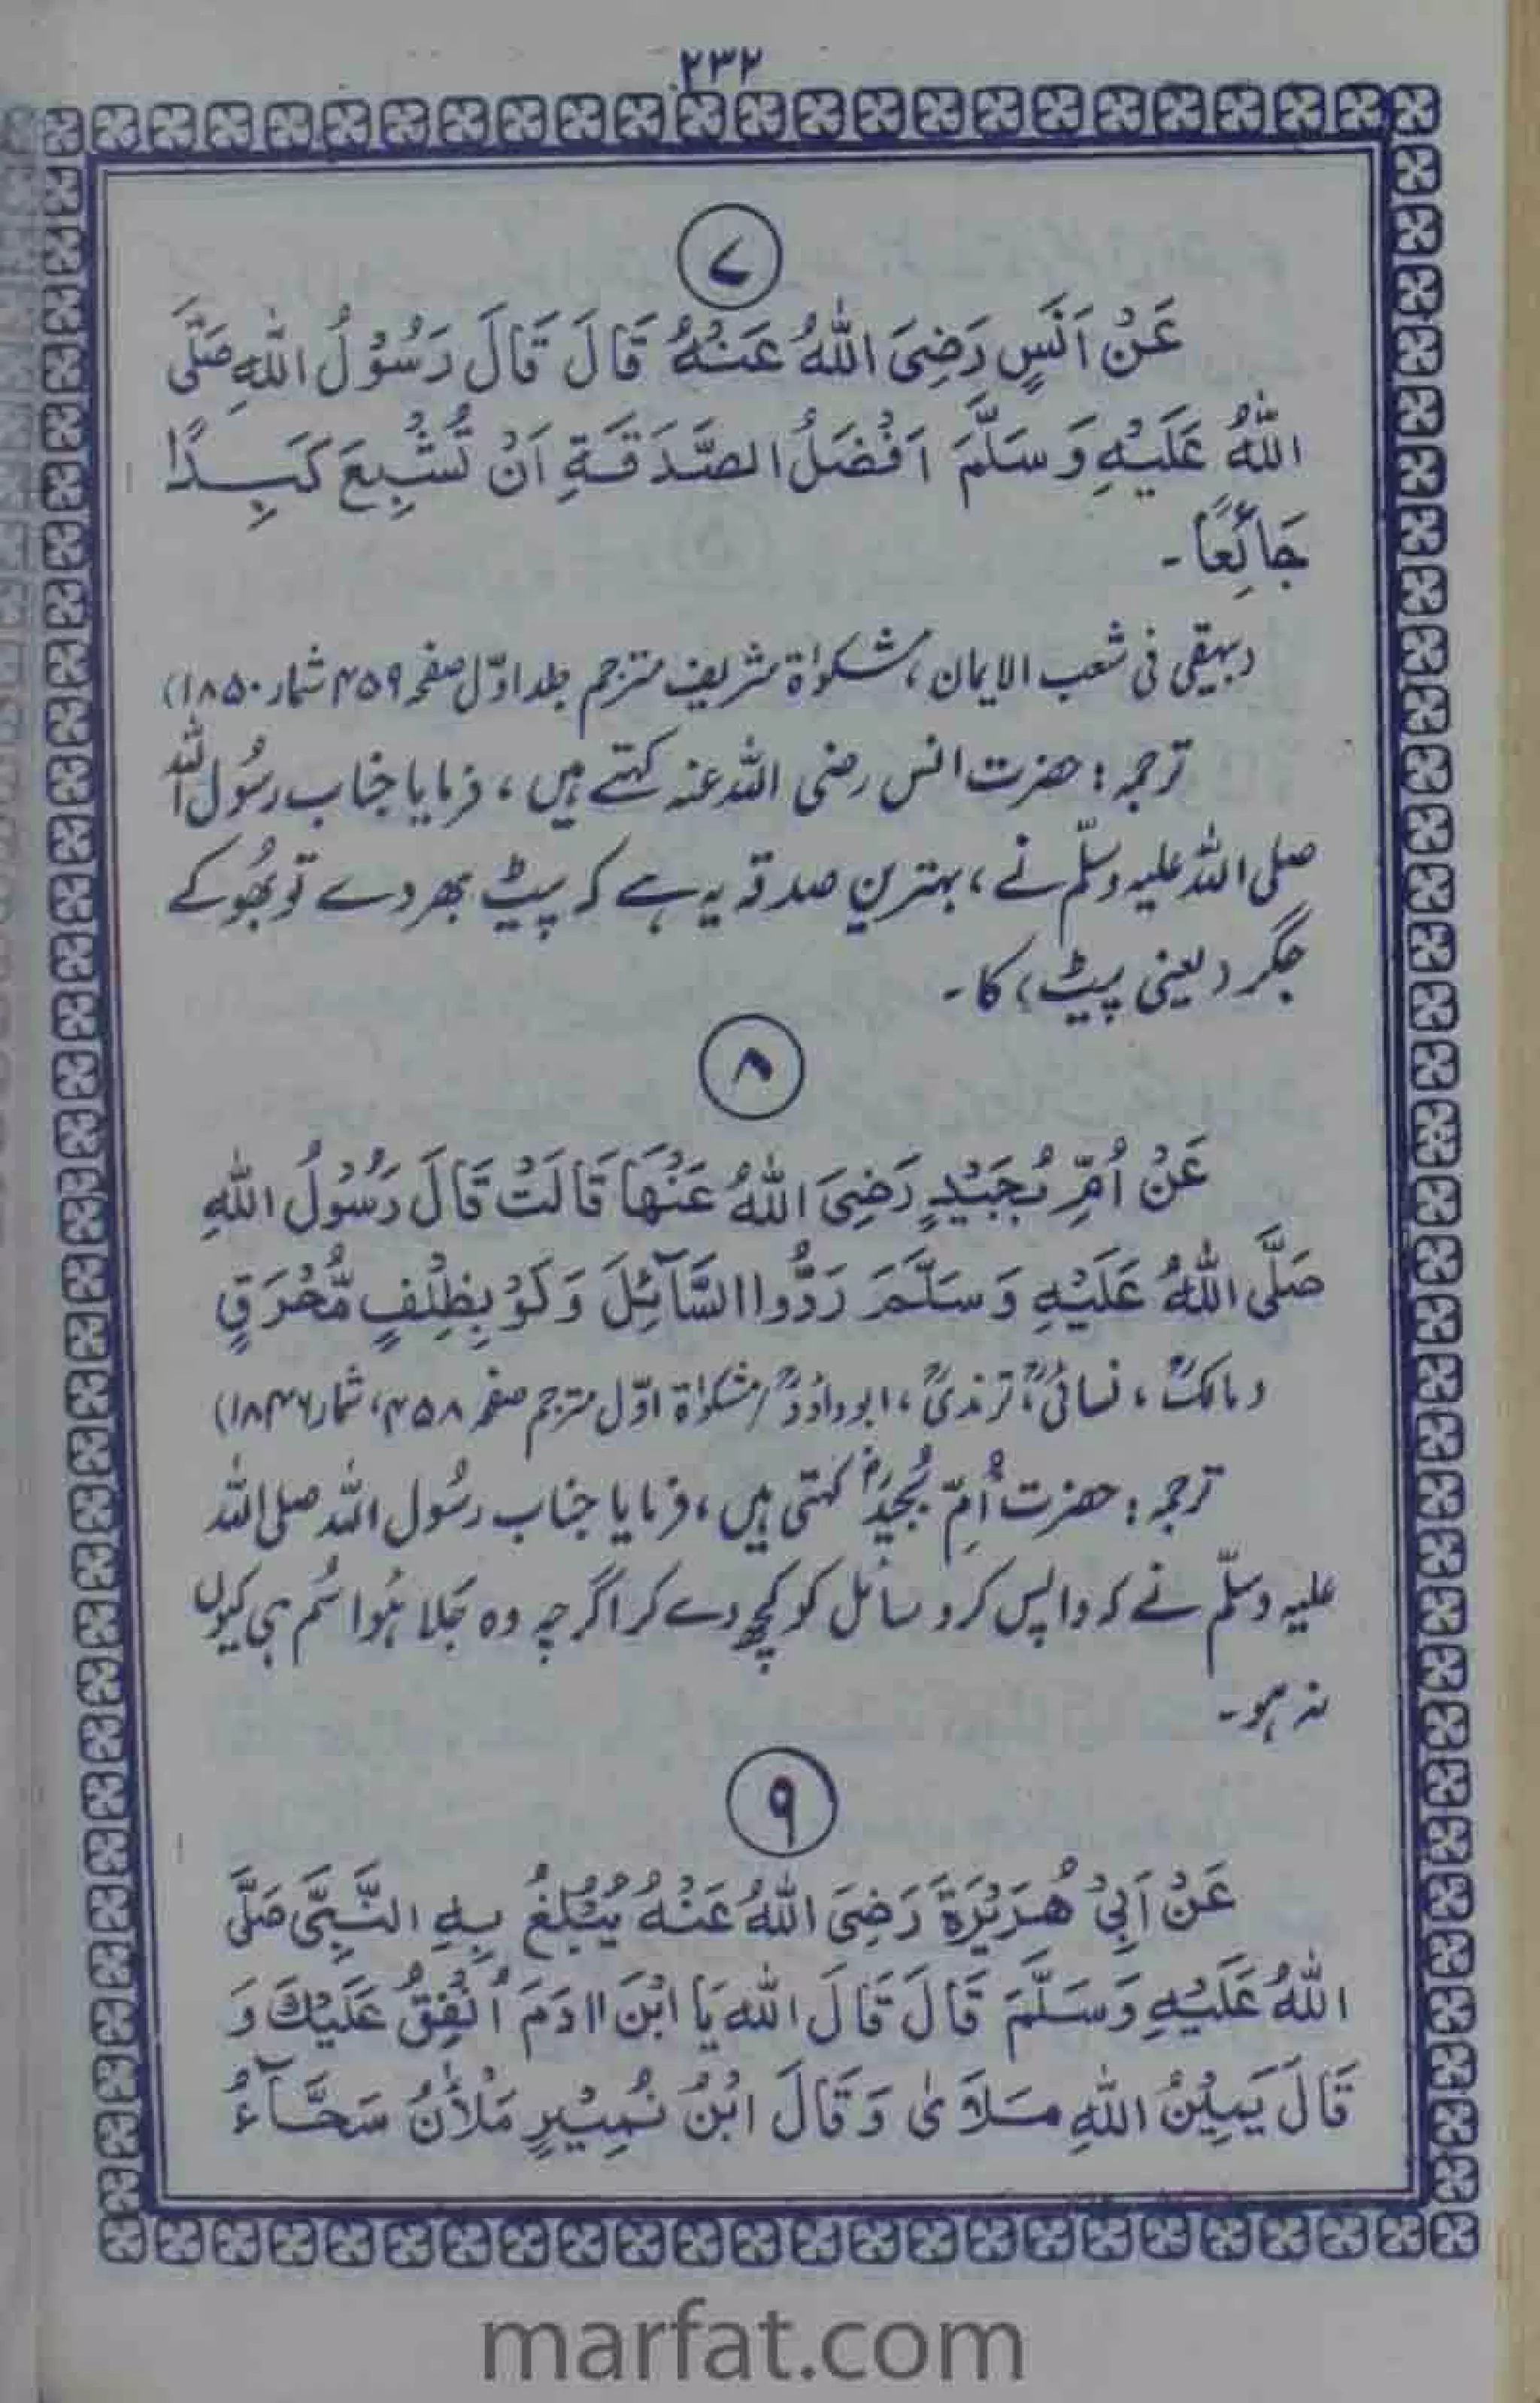 ۲۳۲
۷
عَنْ اَنَسٍ رَضِیَ اللّٰهُ عَنْهُ قَالَ قَالَ رَسُوْلُ اللّٰهِ صَلَّى
اللّٰهُ عَلَیْهِ وَسَلَّمَ اَفْضَلُ الصَّدَقَةِ اَنْ تُشْبِعَ كَبِدًا
جَائِعًا۔
(بیہقی فی شعب الایمان، مشکوٰۃ شریف مترجم جلد اوّل صفحہ ۴۵۹ شمار ۱۸۵۰)
ترجمہ: حضرت انس رضی اللہ عنہ کہتے ہیں، فرمایا جناب رسُول اللہ
صلی اللہ علیہ وسلّم نے، بہترین صدقہ یہ ہے کہ پیٹ بھر دے تو بھُوکے
جگر (یعنی پیٹ) کا۔
۸
عَنْ اُمِّ بُجَیْدٍ رَضِیَ اللّٰهُ عَنْهَا قَالَتْ قَالَ رَسُوْلُ اللّٰهِ
صَلَّى اللّٰهُ عَلَیْهِ وَسَلَّمَ رَدُّوا السَّآئِلَ وَلَوْ بِظِلْفٍ مُّحْرَقٍ
(مالکؒ، نسائیؒ، ترمذیؒ، ابوداؤدؒ/مشکوٰۃ اوّل مترجم صفحہ ۴۵۸، شمار ۱۸۴۶)
ترجمہ: حضرت اُمِّ بُجَیْدؓ کہتی ہیں، فرمایا جناب رسُول اللہ صلی اللہ
علیہ وسلّم نے کہ واپس کرو سائل کو کچھ دے کر اگرچہ وہ جَلا ہُوا سُم ہی کیوں
نہ ہو۔
۹
عَنْ اَبِیْ هُرَیْرَةَ رَضِیَ اللّٰهُ عَنْهُ یُبْلِغُ بِهِ النَّبِیَّ صَلَّى
اللّٰهُ عَلَیْهِ وَسَلَّمَ قَالَ قَالَ اللّٰه یَا ابْنَ اٰدَمَ اُنْفِقُ عَلَیْكَ وَ
قَالَ یَمِیْنُ اللّٰهِ مَلَاٰى وَقَالَ ابْنُ نُمِیْرٍ مَلْاٰنُ سَحَّآءُ
marfat.com